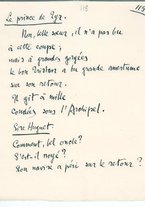 113
115
Le prince de Tyr.
Non, belle sœur, il n'a pas bu
à cette coupe ;
mais à grandes gorgées
le bon Tristan a bu grande amertume
sur son retour.
Il gît à mille
coudées sous l'Archipel.
Sire Huguet
Comment, bel oncle ?
S'est-il noyé ?
Son navire a péri sur le retour ?